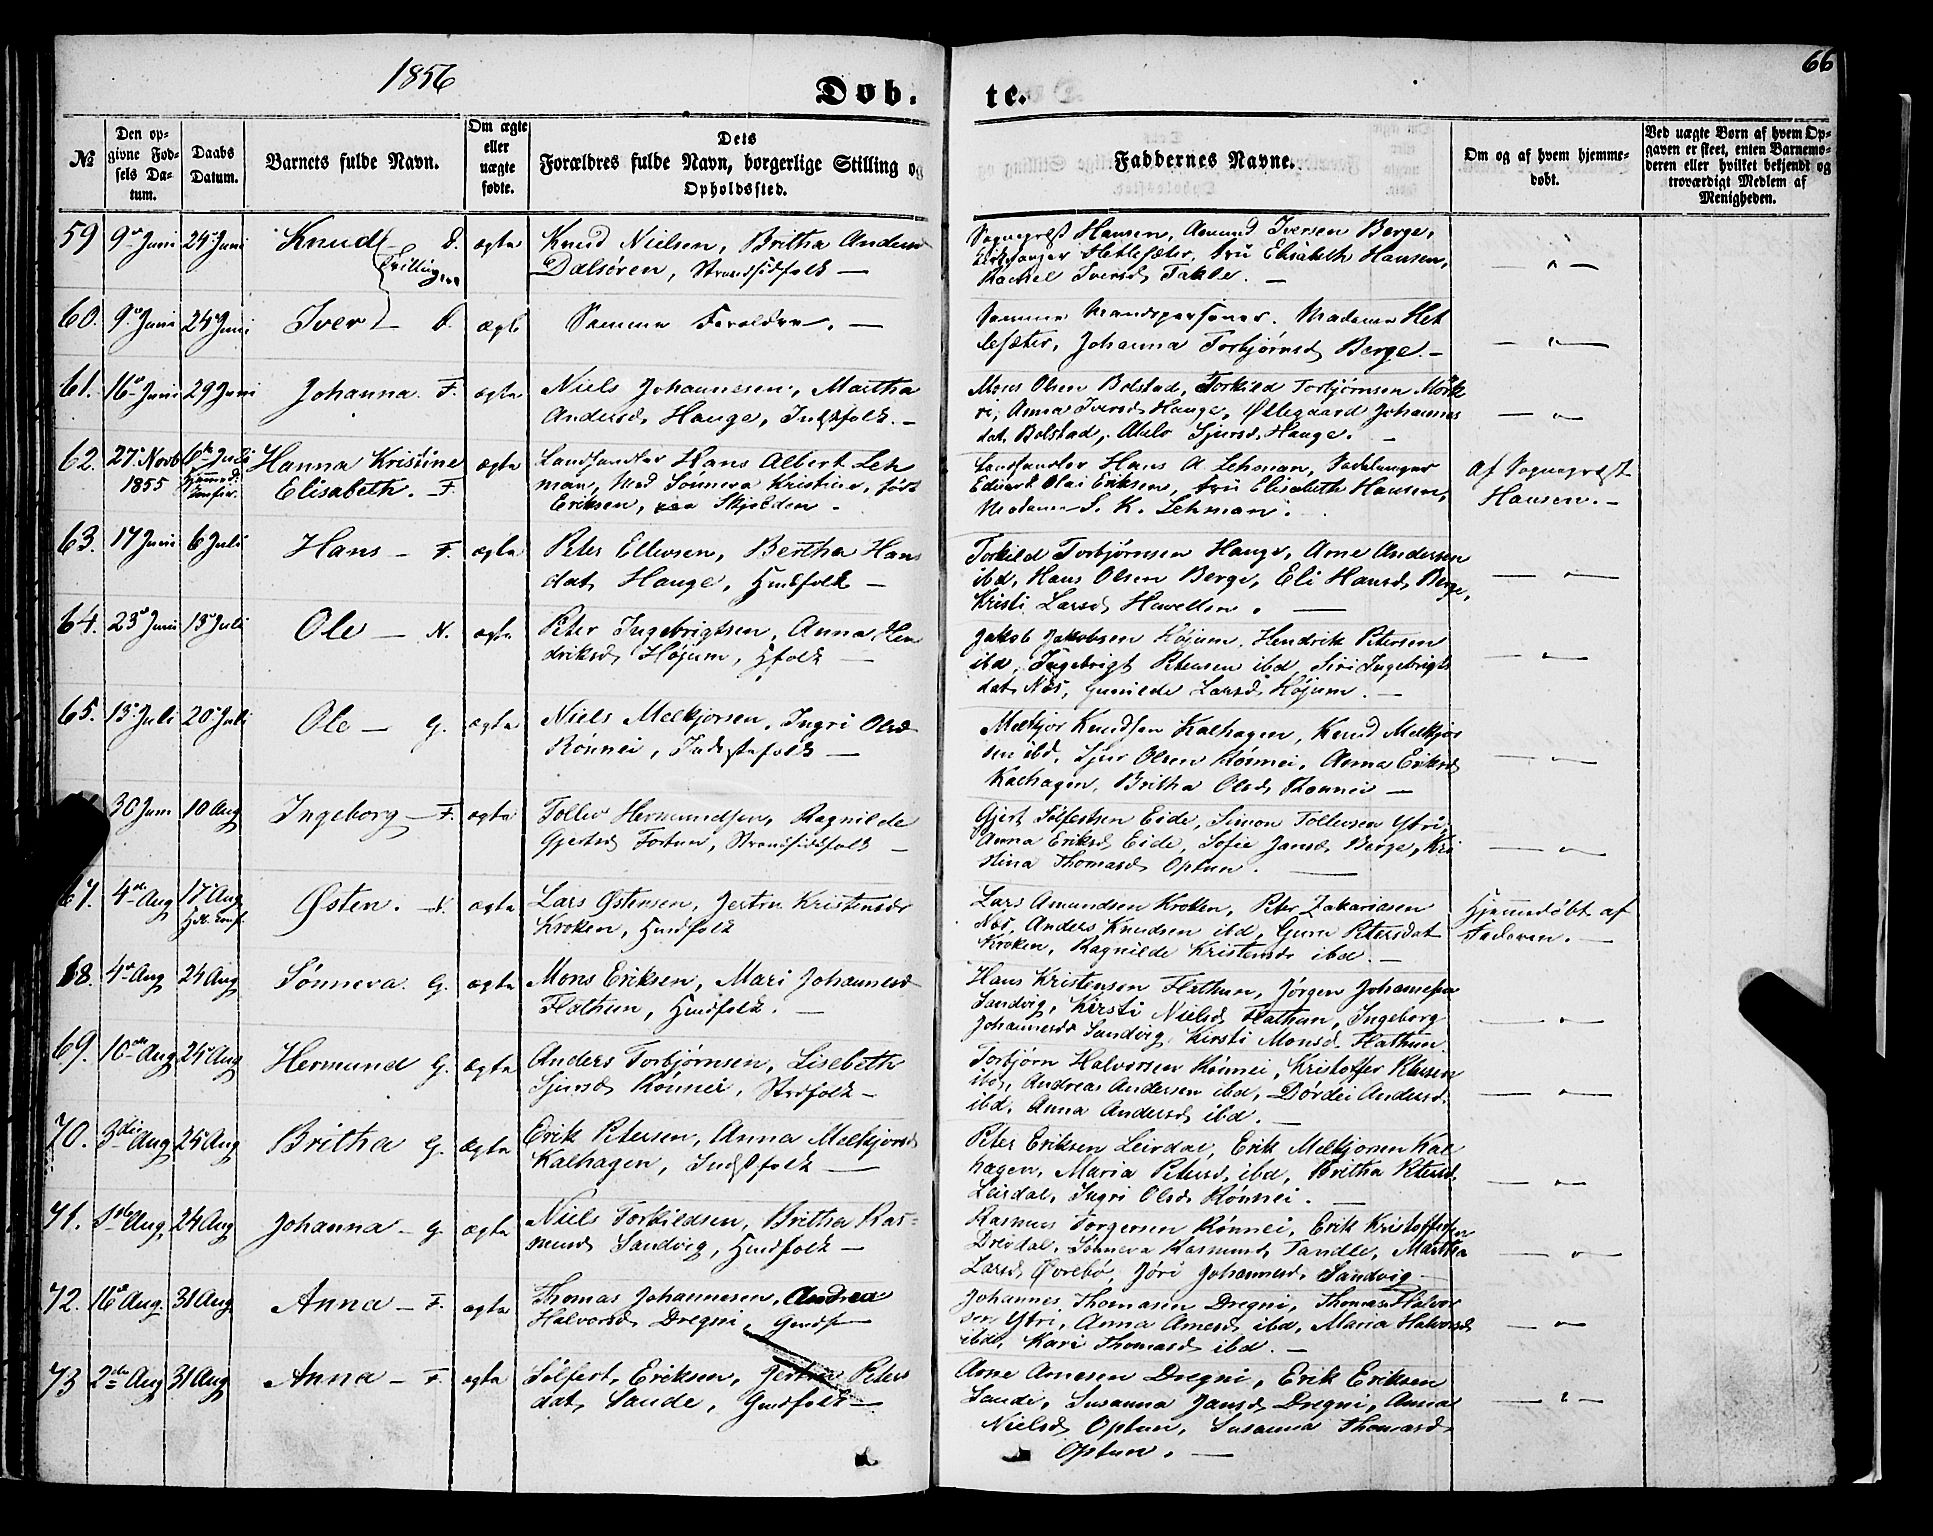 1856
66
Døb.
te.
№
Den op-
givne Fød-
sels Da-
tum.
Daabs
Datum.
Barnets fulde Navn.
Om ægte
eller
uægte
fødte.
Dets
Forældres fulde Navn, borgerlige Stilling og
Opholdssted.
Faddernes Navne.
Om og af hvem hjemme-
døbt.
Ved uægte Børn af hvem Op-
gaven er skeet, enten Barnemo-
deren eller hvilket bekjendt og
troværdigt Medlem af
Menigheden.
59 9de Juni 24de Juni Knud D. ægte Knud Nielsen, Britha Andersd
Trillinger Dalsøren, Strandsidfolk —
Sognepræst Hansen, Amund Iversen Berge,
Hetlesæter, Fru Elisabeth Hansen,
Rachel Iversd
60. 9de Juni 24de Juni Iver — D. ægte Samme Forældre. —
Samme Mandspersoner. Madame Het
lesæter, Johanna Torbjørnsd Berge. —
61. 16de Juni 29 Juni Johanna F. ægte Niels Johannesen, Martha
Andersd Hauge, Indstfolk. —
Mons Olsen Bolstad, Torkild Torbjørnsen Mørk
ri, Anna Iversd Hauge, Øllegaard Johannes
dat Bolstad, Sjursd Hauge. —
62. 27 Novb 6te Juli Hanna Kristine ægte Landhandler Hans Albert Leh
1855 Elisabeth. F. man, Mad Sønneva Kristine, født
Eriksen, Skjolden.
Landhandler Hans A. Lehman,
Edvard Olai Eriksen, Fru Elisabeth Hansen,
Madame S. K. Lehman.
Af Sognepræst
Hansen. —
63. 17 Juni 6 Juli Hans — F. ægte Peter Ellevsen, Bertha Hans
dat Hauge, Hmdfolk —
Torkild Torbjørnsen Hauge, Arne Andersen
ibd, Hans Olsen Berge, Eli Hansd Berge,
Kristi Larsd
64. 23de Juni 13de Juli Ole — N. ægte Peter Ingebrigtsen, Anna Hen
driksd Højum, Hfolk —
Jakob Jakobsen Højum, Hendrik Petersen
ibd, Ingebrigt Petersen ibd, Siri Ingebrigts
dat Nes, Gunilde Larsd Højum. —
65. 13de Juli 20de Juli Ole — G. ægte Niels Melkjorsen, Ingri Olsd
Rønnei, Indstefolk —
Melkjor Knudsen Kalhagen, Knud Melkjor
sen ibd, Sjur Olsen Rønnei, Anna Eriksd
Kalhagen, Britha Olsd Rønnei —
30 Juni 10 Aug Ingeborg — F. ægte Tollev Hermundsen, Ragnilde
Gjertsd Fortun, Strandsidfolk —
Gjert Sølfestsen Eide, Simon Tollevsen Ytri,
Anna Eriksd Eide, Sofie Jansd Berge, Kri
stina Thomasd Optun. —
67. 4de Aug 17 Aug Østen. N. ægte Lars Østensen, Jertru Kristensd
Kroken, Hmdfolk
Lars Amundsen Kroken, Peter Zakariasen
Nes, Anders Knudsen ibd, Guru Petersdat
Kroken, Ragnilde Kristensd ibd. —
Hjemmedøbt af
Faderen. —
68. 4de Aug 24 Aug Sønneva. G. ægte Mons Eriksen, Mari Johannesd
Flathun, Hmdfolk. —
Hans Kristensen Flathun, Jörgen Johannesen
Sandvig, Kirsti Nielsd Flathun, Ingeborg
Johannesd Sandvig, Kirsti Monsd Flathun
69. 10de Aug 24de Aug Hermund G. ægte Anders Torbjørnsen, Lisebeth
Sjursd Rønnei, Strdfolk —
Torbjørn Halvorsen Rønnei, Kristoffer Petersen
ibd, Andreas Andersen ibd, Dørdei Andersd.
ibd, Anna Andersd ibd. —
70. 3die Aug 24 Aug Britha G. ægte Erik Petersen, Anna Melkjorsd
Kalhagen, Indstfolk —
Peter Eriksen Leirdal, Erik Melkjorsen Kal
hagen, Maria Petersd ibd, Britha Petersd
Leirdal, Ingri Olsd Rønnei. —
71. Aug. 24 Aug Johanna — G. ægte Niels Torkildsen, Britha Ras-
musd Sandvig, Hmdfolk —
Rasmus Torgersen Rønnei, Erik Kristoffersen
Drevdal, Sønneva Rasmusd Tandle, Martha
Larsd Øvrebø, Jóri Johannesd Sandvig —
72. 16de Aug. 31 Aug Anna — F. ægte Thomas Johannesen, Andrea
Halvorsd Dregni, Gmdf —
Johannes Thomasen Dregni, Thomas Halvor
sen Ytri, Anna Arnesd ibd, Maria Halvorsd
ibd, Kari Thomasd ibd. —
73 2den Aug 31 Aug Anna — F. ægte Sølfest Eriksen, Jertru Peters
dat Sande, Gmdfolk —
Arne Arnesen Dregni, Erik Eriksen
Sande, Susanna Jansd Dregni, Anna
Nielsd Optun, Susanna Thomasd
Optun. —